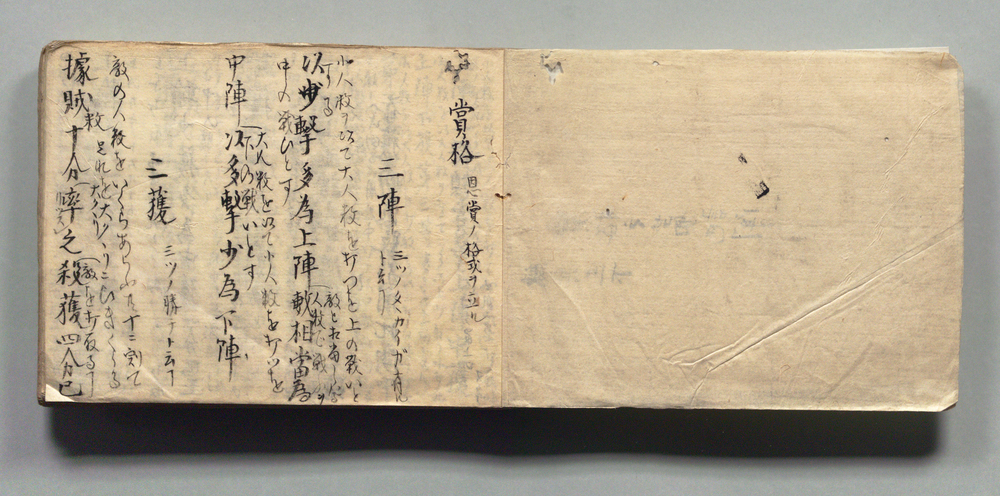 賞ノ格 恩賞ノ格式ヲ立ル
三陣 三ツノタヽカイガ有ル
ト云フ
小人数ヲ以て大人数を打つを上の戦いと
する
以少撃多為上陣 数相當為
敵と相當し
人数
中の戦ひとす
大人数を以て小人数を打つを
中陣 以多撃少為下陣
下の戦いとす
三獲 三ツノ勝チト云フ
敵の人数をいくらあらふとも十に割て
数 是れを大がくりに
據賊十分率之殺獲四分已
敵を打取る